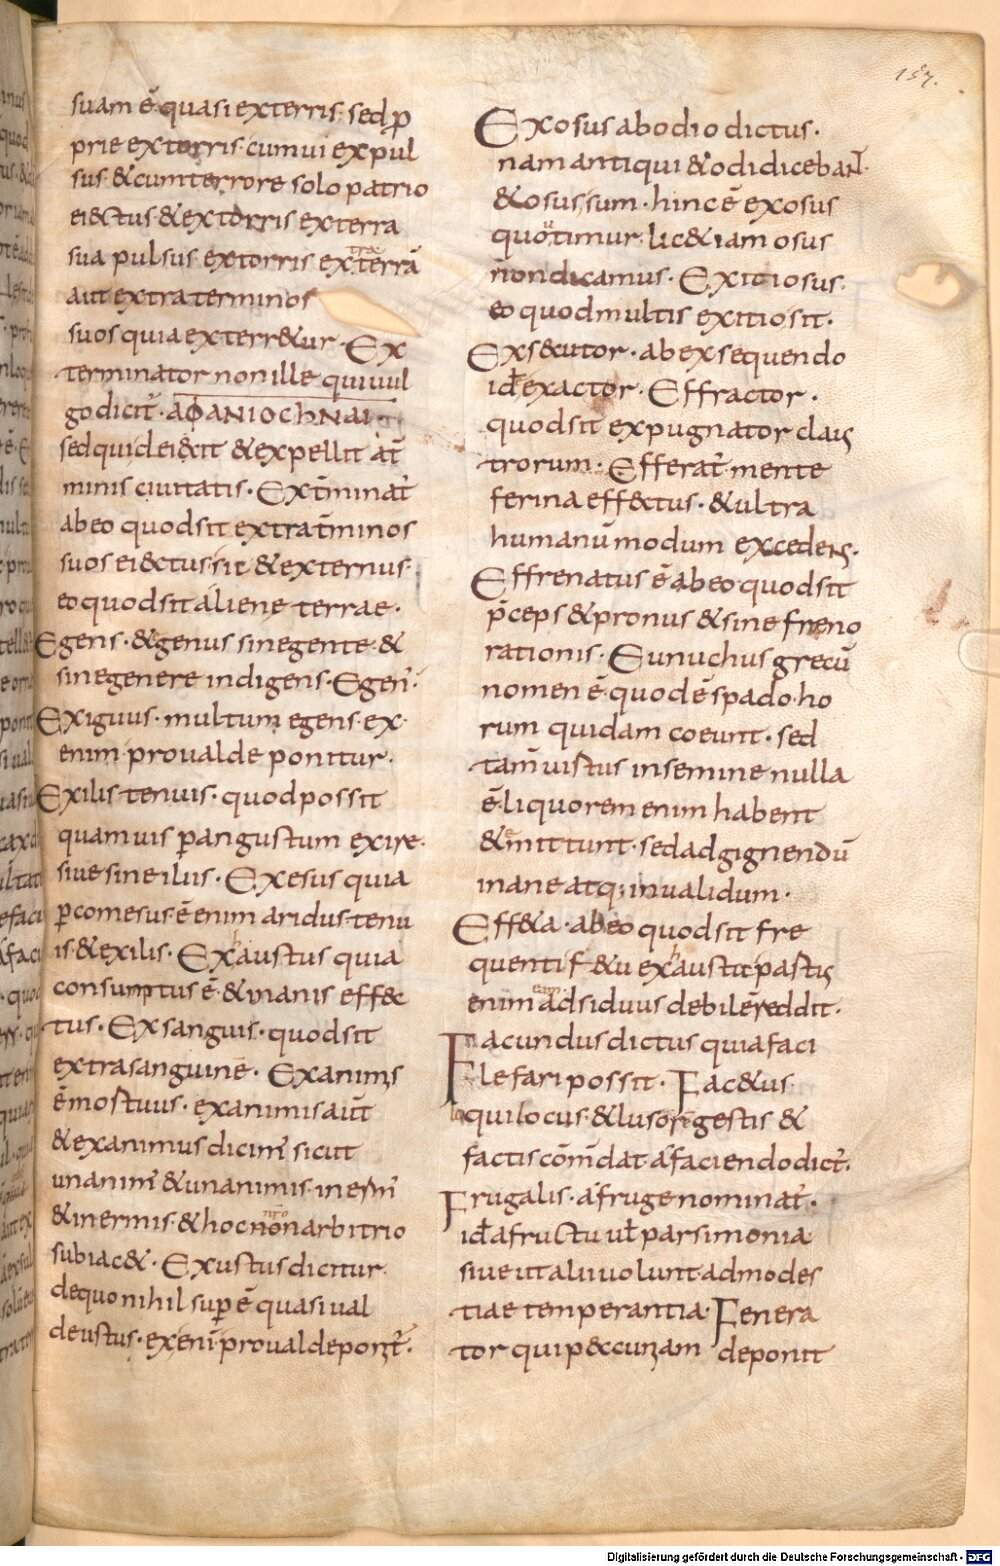 157.
suam ē quasi exterris; sed ꝓ
prie extorris. cum ui expul
sus. & cum terrore solo patrio
ei&ctus & extorris ex terra
sua pulsus extorris ex terrā
aut extra terminos
suos quia exterr&ur. Ex
terminator non ille qui uul
go dicit̄. AΦANIOCHNAI.
sed qui dei&cit & expellit at̄
minis ciuitatis. Ext̄minat̄
ab eo quod sit extra t̄minos
suos ei&ctus sit & externus
eo quod sit aliene terrae.
Egens. & genus sine gente &
sine genere indigens. Egen̄.
Exiguus. multum egens. ex.
enim pro ualde ponitur.
Exilis tenuis. quod possit
quamuis p̄angustum exire.
siue sine iluis. Exesus quia
p̄comesus ē enim aridus tenu
is. & exilis. Exhaustus quia
consumptus ē. & inanis effec
tus. Exsanguis. quod sit
extra sanguinē. Exanimis
ē mostuus. exanimis aut̄
& exanimus dicim̄ sicut
unanim̄ & unanimis. inerm̄
& inermis. & hoc nr̄o non arbitrio
subiac&. Exustus dicitur.
de quo nihil sup̄ ē quasi ual
de ustus. ex eni pro ualde ponit̄.
Exosus ab odio dictus.
nam antiqui & odi diceban̄t.
& osus sum. hinc ē exosus
quo utimur. lic& iam osus
n̄on dicamus. Exitiosus.
eo quod multis exitio sit.
Exsecutor. ab exsequendo
id̄ exactor. Effractor.
quod sit expugnator claus
trorum. Efferat̄ mente
ferina eff&ctus. & ultra
humanū modum excedens.
Effrenatus ē ab eo quod sit
p̄ceps & pronus & sine freno
rationis. Eunuchus grecū
nomen ē. quod ē spado. ho
rum quidam coeunt. sed
tam̄ uistus in semine nulla
ē. liquorem enim habent
& emittunt. sed ad gignendū
inane atq; inualidum.
Eff&a. ab eo quod sit fre
quenti f&u exhausta partus
enim eam adsiduus debilē reddit.
Facundus dictus quia faci
le fari possit. Fac&us
qui locus & lusor gestis &
factis cōm̄dat. a faciendo dict̄.
Frugalis. a fruge nominat̄.
id̄ a fructu ul̄ parsimonia.
siue ut alii uolunt. ad modes
tiae temperantia. Fenera
tor qui pecuniam deponit